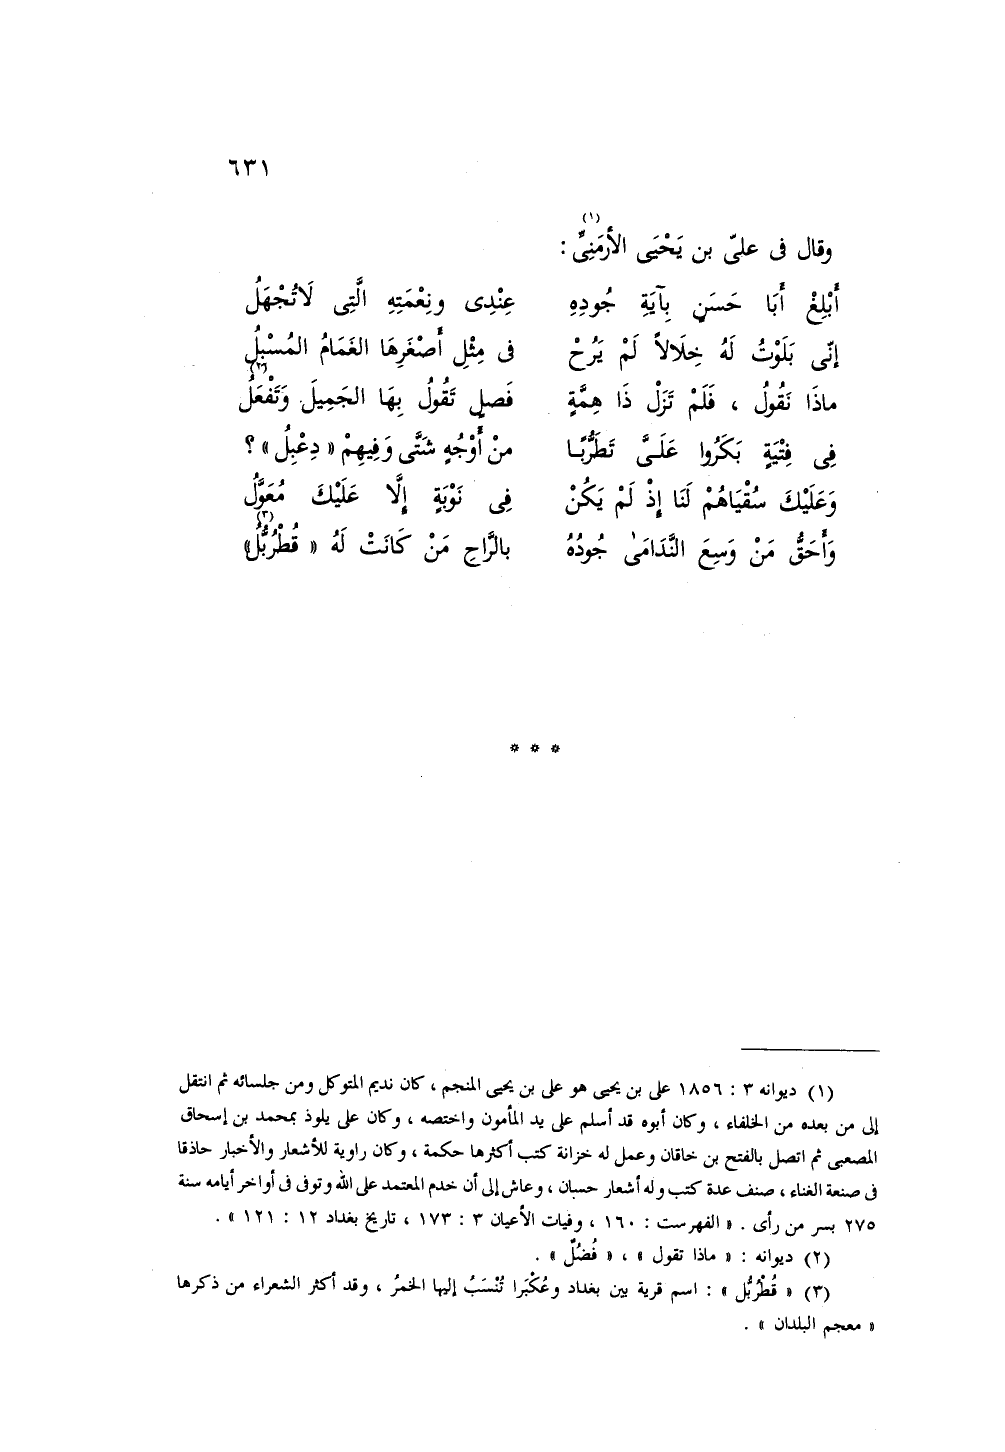 ٦٣١
(١)
وقال فى علىّ بن يَحْيَى الأَرْمَنِىِّ :
أَبْلِغْ أَبَا حَسَنٍ بِآيَةِ جُودِهِ عِنْدِى ونِعْمَتِهِ الَّتِى لَاتُجْهَلُ
إنّى بَلَوْتُ لَهُ خِلَالاً لَمْ يَرُحْ فى مِثْلِ أَصْغَرِهَا الغَمَامُ المُسْبِلُ
(٢)
ماذَا نَقُولُ ، فَلَمْ تَزَلْ ذَا هِمَّةٍ فَصلٍ تَقُولُ بِهَا الجَمِيلَ وَتَفْعَلُ
فِى فِتْيَةٍ بَكَرُوا عَلَىَّ تَطَرُّبًا منْ أَوْجُهٍ شَتَّى وَفِيهِمْ « دِعْبِلُ » ؟
وَعَلَيْكَ سُقْيَاهُمْ لَنَا إِذْ لَمْ يَكُنْ فِى نَوْبَةٍ إِلَّا عَلَيْكَ مُعَوَّلُ
(٣)
وَأَحَقُّ مَنْ وَسِعَ النَّدَامَىٰ جُودُهُ بالرَّاحِ مَنْ كَانَتْ لَهُ « قُطْرُبُّلُ»
* * *
(١) ديوانه ٣ : ١٨٥٦ على بن يحيى هو على بن يحيى المنجم ، كان نديم المتوكل ومن جلسائه ثم انتقل
إلى من بعده من الخلفاء ، وكان أبوه قد أسلم على يد المأمون واختصه ، وكان على يلوذ بمحمد بن إسحاق
المصعبى ثم اتصل بالفتح بن خاقان وعمل له خزانة كتب أكثرها حكمة ، وكان راوية للأشعار والأخبار حاذقا
فى صنعة الغناء ، صنف عدة كتب وله أشعار حسان ، وعاش إلى أن خدم المعتمد على الله وتوفى فى أواخر أيامه سنة
٢٧٥ بسر من رأى . « الفهرست : ١٦٠ ، وفيات الأعيان ٣ : ١٧٣ ، تاريخ بغداد ١٢ : ١٢١ » .
(٢) ديوانه : « ماذا تقول » ، « فُضُلٌ » .
(٣) « قُطْرُبُّل » : اسم قرية بين بغداد وعُكْبَرا تُنْسَبُ إليها الخمرُ ، وقد أكثر الشعراء من ذكرها
« معجم البلدان » .